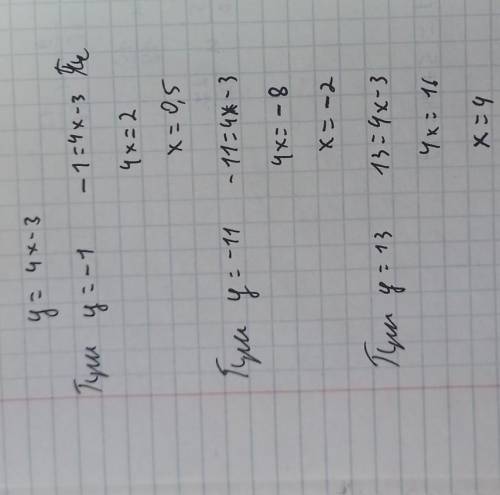 y = 4x - 3
При y = -1 -1 = 4x - 3
4x = 2
x = 0,5
При y = -11 -11 = 4x - 3
4x = -8
x = -2
При y = 13 13 = 4x - 3
4x = 16
x = 4